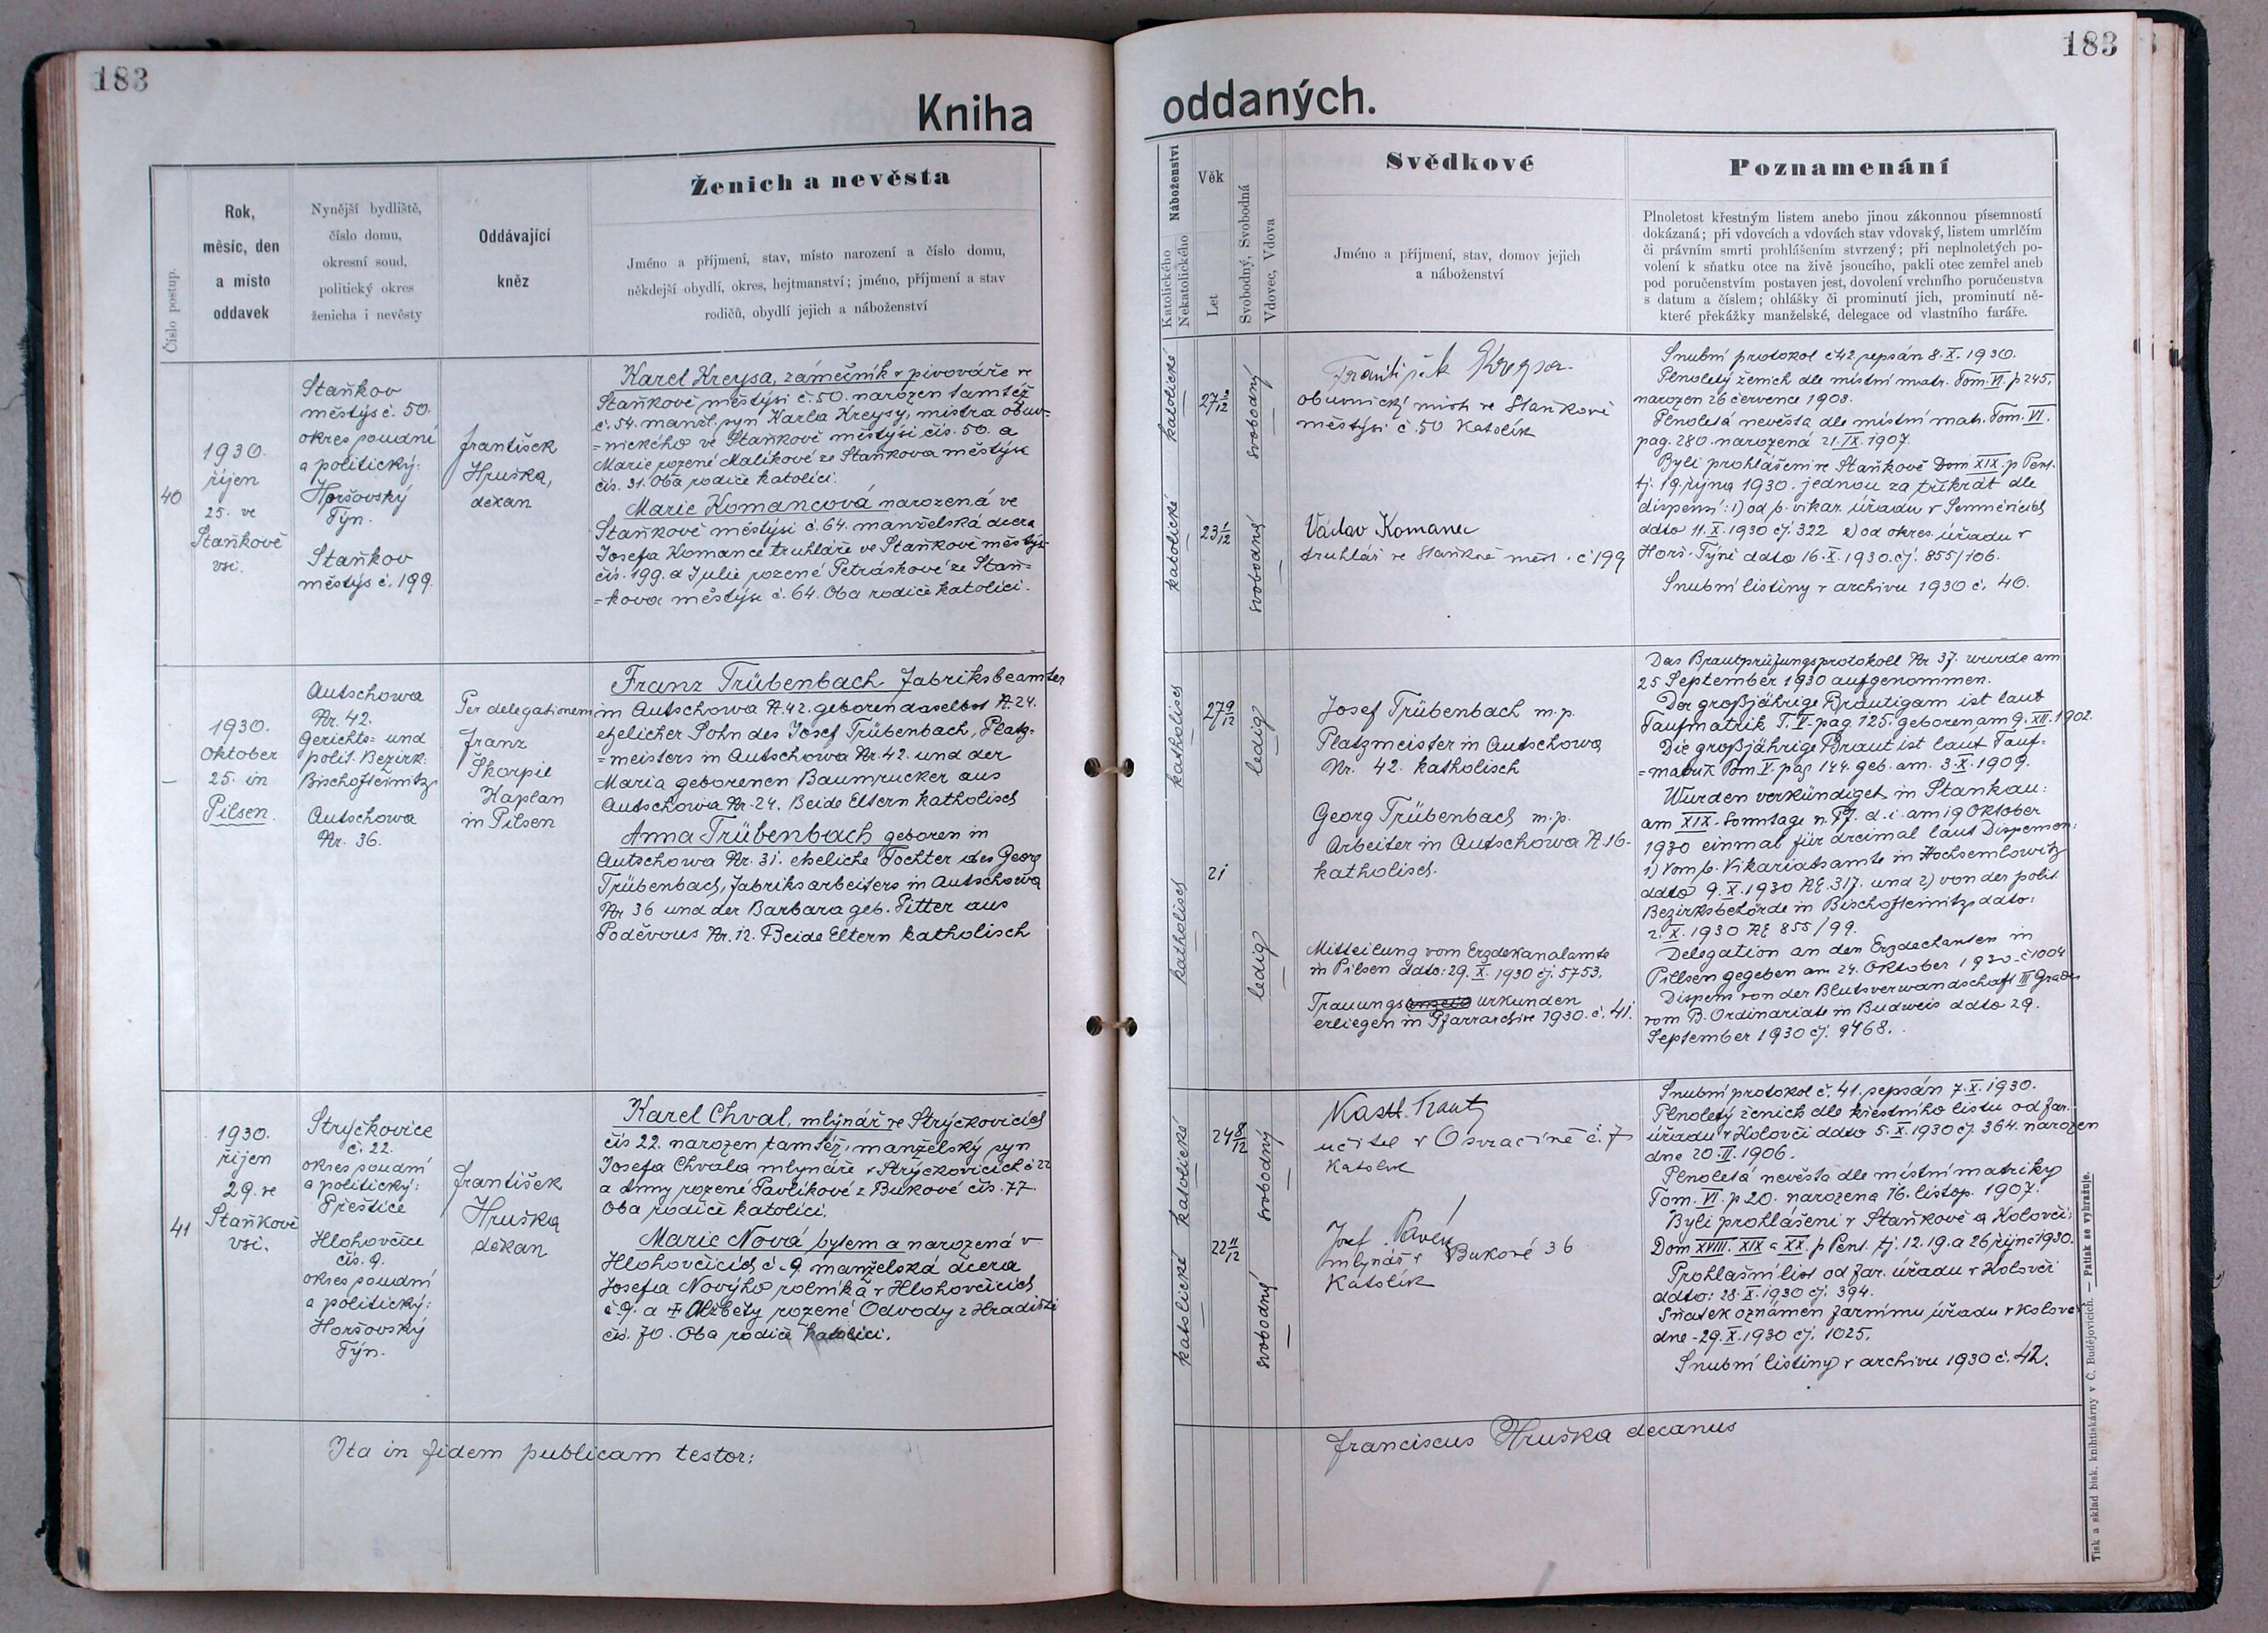 183
183
Kniha
oddaných.
Číslo postup.
Rok,
měsíc, den
a místo
oddavek
Nynější bydliště,
číslo domu,
okresní soud,
politický okres
ženicha i nevěsty
Oddávající
kněz
Ženich a nevěsta
Jméno a příjmení, stav, místo narození a číslo domu,
někdejší obydlí, okres, hejtmanství; jméno, příjmení a stav
rodičů, obydlí jejich a náboženství
Náboženství
Katolického
Nekatolického
Věk
Let
Svobodný, Svobodná
Vdovec, Vdova
Svědkové
Jméno a příjmení, stav, domov jejich
a náboženství
Poznamenání
Plnoletost křestným listem anebo jinou zákonnou písemností
dokázaná; při vdovcích a vdovách stav vdovský, listem umrlčím
či právním smrti prohlášením stvrzený; při neplnoletých po-
volení k sňatku otce na živě jsoucího, pakli otec zemřel aneb
pod poručenstvím postaven jest, dovolení vrchního poručenstva
s datum a číslem; ohlášky či prominutí jich, prominutí ně-
které překážky manželské, delegace od vlastního faráře.
40
1930.
říjen
25. ve
Staňkově
vsi.
Staňkov
městys č. 50.
okres soudní
a politický:
Horšovský
Týn.
Staňkov
městys č. 199.
František
Hruška,
děkan
Karel Kreysa, zámečník v pivováře ve
Staňkově městýsi č. 50. narozen tamtéž
č. 54. manžel. syn Karla Kreysy, mistra obuv-
=nického ve Staňkově městýsi čís. 50. a
Marie rozené Malíkové ze Staňkova městýse
čís. 31. Oba rodiče katolíci.
Marie Komancová narozená ve
Staňkově městýsi č. 64. manželská dcera
Josefa Komance truhláře ve Staňkově městýsi
čís. 199. a Julie rozené Petráskové ze Staň=
=kova městýse č. 64. Oba rodiče katolíci.
katolické
katolické
27 /12
23 1/12
svobodný
svobodná
František Kreysa
obuvnický mistr ve Staňkově
městýsi č. 50 Katolík
Václav Komanec
truhlář ve Staňkově měst. č 199
Snubní protokol č 42 sepsán 8. X. 1930.
Plnoletý ženich dle místní matr. Tom. VI. p 245.
narozen 26 července 1903.
Plnoletá nevěsta dle místní matr. Tom. VI.
pag. 280. narozená 21. IX. 1907.
Byli prohlášeni ve Staňkově Dom XIX. p Pent.
tj. 19. října 1930. jednou za třikrát dle
dispensí: 1) od b. vikar. úřadu v Semněvicích
ddto 11. X. 1930 čj. 322 2) od okres. úřadu v
Horš. Týně ddto 16. X. 1930. čj. 855/106.
Snubní listiny v archivu 1930 č. 40.
—
1930.
Oktober
25. in
Pilsen.
Autschowa
Nr. 42.
Gerichts= und
polit. Bezirk:
Bischofteinitz
Autschowa
Nr. 36.
Per delegationem
Franz
Škorpil
Kaplan
in Pilsen
Franz Trübenbach Fabriksbeamter
in Autschowa N. 42. geboren daselbst N. 24.
ehelicher Sohn des Josef Trübenbach, Platz=
=meisters in Autschowa Nr. 42. und der
Maria geborenen Baumrucker aus
Autschowa Nr. 24. Beide Eltern katholisch
Anna Trübenbach geboren in
Autschowa Nr. 31. eheliche Tochter des Georg
Trübenbach, Fabriksarbeiters in Autschowa
Nr 36 und der Barbara geb. Pitter aus
Poděvous Nr. 12. Beide Eltern katholisch
katholisch
katholisch
27 9/12
21
ledig
ledig
Josef Trübenbach m. p.
Platzmeister in Autschowa
Nr. 42. katholisch
Georg Trübenbach m. p.
Arbeiter in Autschowa N. 16.
katholisch.
Mitteilung vom Erzdekanalamte
in Pilsen ddto: 29. X. 1930 čj. 5753.
Trauungs urkunden
erliegen im Pfarrarchive 1930. č. 41.
Das Brautprüfungsprotokoll Nr 37. wurde am
25 September 1930 aufgenommen.
Der großjährige Bräutigam ist laut
Taufmatrik T. II. pag 125. geboren am 9. XII. 1902.
Die großjährige Braut ist laut Tauf=
=matrik Tom V. pag 144. geb. am. 3. X. 1909.
Wurden verkündiget in Stankau:
am XIX. Sonntage n. Pf. d. i. am 19 Oktober
1930 einmal für dreimal laut Dispensen:
1) Vom b. Vikariatsamte in Hochsemlowitz
ddto 9. X. 1930 NE. 317. und 2) von der polit.
Bezirksbehörde in Bischofteinitz ddto:
2. X. 1930 NE 855/99.
Delegation an den Erzdechanten in
Pillsen gegeben am 24. Oktober 1930 č 1004
Dispens von der Blutsverwandschaft III Grades
vom B. Ordinariate in Budweis ddto 29.
September 1930 čj. 9468.
41
1930.
říjen
29. ve
Staňkově
vsi.
Strýčkovice
č. 22.
okres soudní
a politický:
Přeštice
Hlohovčice
čís. 9.
okres soudní
a politický:
Horšovský
Týn.
František
Hruška
děkan
Karel Chval, mlýnář ve Strýčkovicích
čís 22. narozen tamtéž, manželský syn
Josefa Chvala mlynáře v Strýčkovicích č 22
a Anny rozené Pavlíkové z Bukové čís. 77.
Oba rodiče katolíci.
Marie Nová bytem a narozená v
Hlohovčicích č. 9 manželská dcera
Josefa Nového rolníka v Hlohovčicích
č. 9. a † Alžběty rozené Odvody z Hradiště
čís. 70. Oba rodiče katolíci.
katolické
katolické
24 8/12
22 11/12
svobodný
svobodná
učitel v Osvračíně č. 7
Katolík
Josef
mlynář v Bukové 36
Katolík
Snubní protokol č. 41. sepsán 7. X. 1930.
Plnoletý ženich dle křestního listu od far.
úřadu v Kolovči ddto 5. X. 1930 čj. 364. narozen
dne 20. II. 1906.
Plnoletá nevěsta dle místní matriky
Tom. VI. p 20. narozena 16. listop. 1907.
Byli prohlášeni v Staňkově a Kolovči:
Dom XVIII. XIX a XX. p Pent. tj. 12. 19. a 26 října 1930.
Prohlašní list od far. úřadu v Kolovči
ddto: 28. X. 1930 čj. 394.
Sňatek oznámen farnímu úřadu v Kolovči
dne 29. X. 1930 čj. 1025.
Snubní listiny v archivu 1930 č. 42.
Ita in fidem publicam testor:
Franciscus Hruška decanus
Tisk a sklad bisk. knihtiskárny v Č. Budějovicích. — Patisk se vyhražuje.